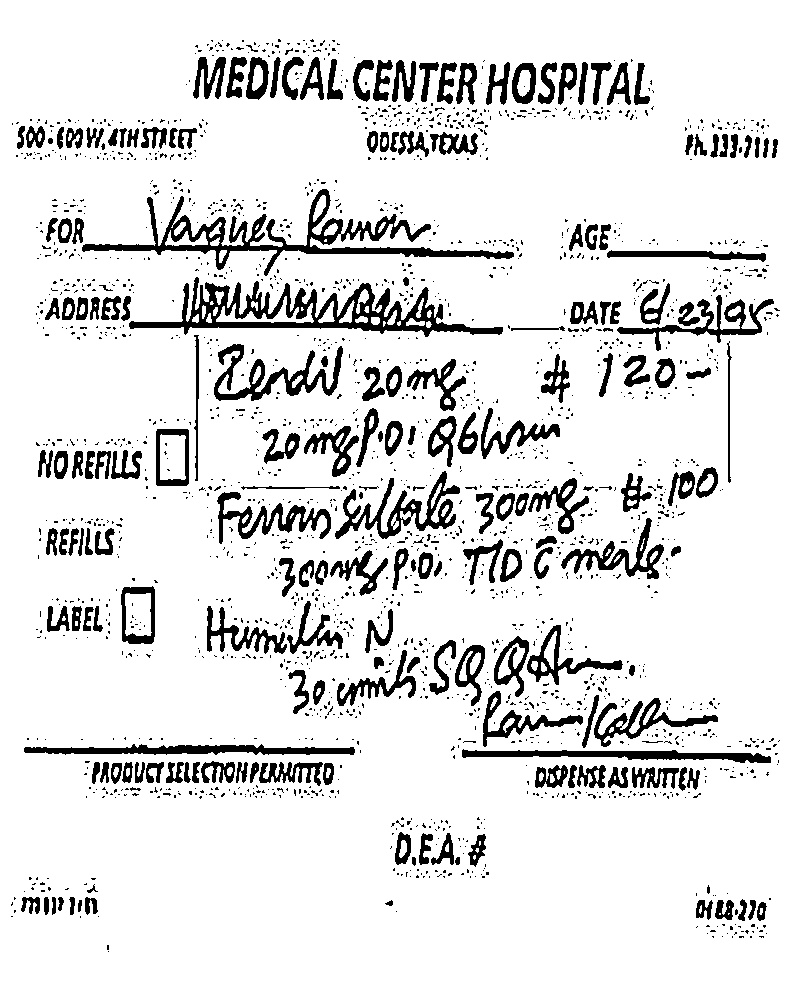 MEDICAL CENTER HOSPITAL
500 - 600 W. 4TH STREET ODESSA, TEXAS Ph. 333-7111
FOR Vasquez, Ramon AGE
ADDRESS DATE 6/23/95
20mg # 120 -
20mg P.O. Q6hours
NO REFILLS
Ferrous Sulfate 300mg # 100
REFILLS
300mg P.O. TID c̄ meals.
LABEL
Humulin N
30 units SQ QAm.
PRODUCT SELECTION PERMITTED DISPENSE AS WRITTEN
D.E.A. #